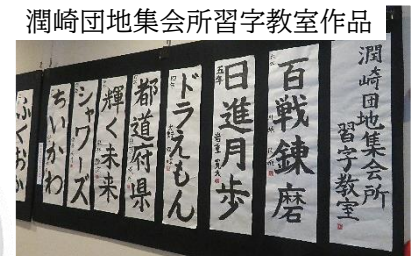 潤崎団地集会所習字教室作品
潤崎団地集会所
習字教室
百戦錬磨
日進月歩
五年
ドラえもん
都道府県
輝く未来
シャワーズ
ちいかわ
ふくおか